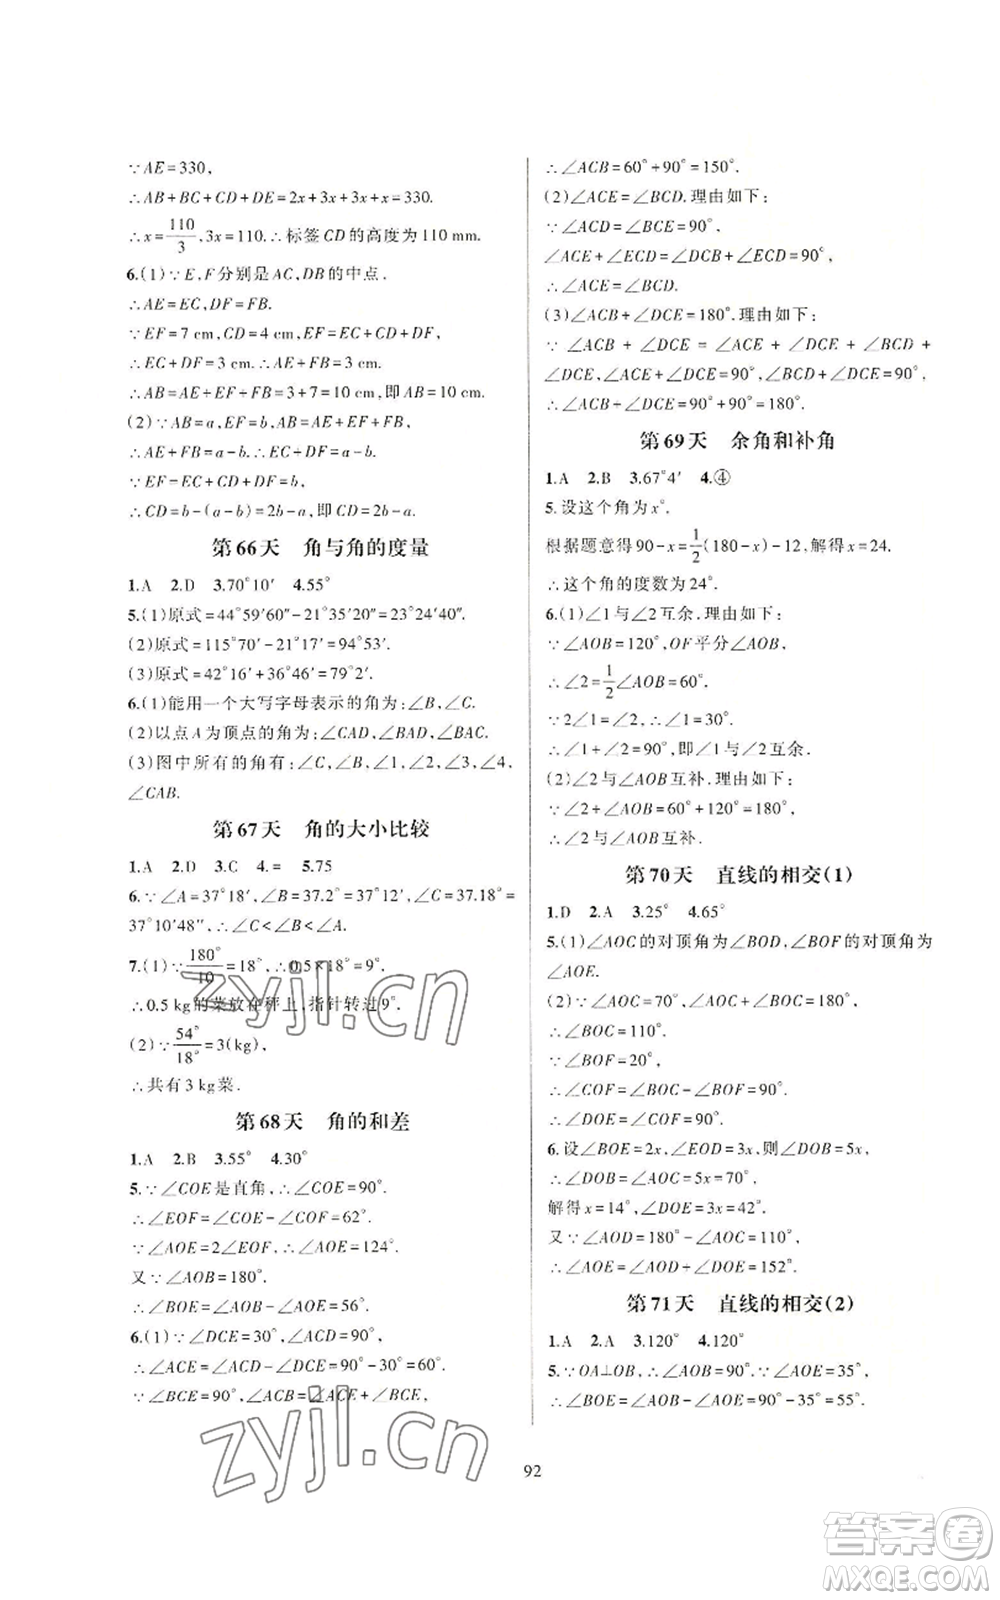 ∵AE=330,
∴AB+BC+CD+DE=2x+3x+3x+x=330.
∴x=110/3,3x=110.∴标签CD的高度为110 mm.
6.(1)∵E,F分别是AC,DB的中点.
∴AE=EC,DF=FB.
∵EF=7 cm,CD=4 cm,EF=EC+CD+DF,
∴EC+DF=3 cm.∴AE+FB=3 cm.
∴AB=AE+EF+FB=3+7=10 cm,即AB=10 cm.
(2)∵AB=a,EF=b,AB=AE+EF+FB,
∴AE+FB=a-b.∴EC+DF=a-b.
∵EF=EC+CD+DF=b,
∴CD=b-(a-b)=2b-a,即CD=2b-a.
第66天 角与角的度量
1.A 2.D 3.70°10′ 4.55°
5.(1)原式=44°59′60″-21°35′20″=23°24′40″.
(2)原式=115°70′-21°17′=94°53′.
(3)原式=42°16′+36°46′=79°2′.
6.(1)能用一个大写字母表示的角为:∠B,∠C.
(2)以点A为顶点的角为:∠CAD,∠BAD,∠BAC.
(3)图中所有的角有:∠C,∠B,∠1,∠2,∠3,∠4,
∠CAB.
第67天 角的大小比较
1.A 2.D 3.C 4.= 5.75
6.∵∠A=37°18′,∠B=37.2°=37°12′,∠C=37.18°=
37°10′48″,∴∠C<∠B<∠A.
7.(1)∵180°/10=18°,∴0.5×18°=9°.
∴0.5 kg的菜放在秤上,指针转过9°.
(2)∵54°/18°=3(kg),
∴共有3 kg菜.
第68天 角的和差
1.A 2.B 3.55° 4.30°
5.∵∠COE是直角,∴∠COE=90°.
∴∠EOF=∠COE-∠COF=62°.
∵∠AOE=2∠EOF,∴∠AOE=124°.
又∵∠AOB=180°.
∴∠BOE=∠AOB-∠AOE=56°.
6.(1)∵∠DCE=30°,∠ACD=90°.
∴∠ACE=∠ACD-∠DCE=90°-30°=60°.
∵∠BCE=90°,∠ACB=∠ACE+∠BCE,
∴∠ACB=60°+90°=150°.
(2)∠ACE=∠BCD.理由如下:
∵∠ACD=∠BCE=90°,
∠ACE+∠ECD=∠DCB+∠ECD=90°,
∴∠ACE=∠BCD.
(3)∠ACB+∠DCE=180°.理由如下:
∵∠ACB+∠DCE=∠ACE+∠DCE+∠BCD+
∠DCE,∠ACE+∠DCE=90°,∠BCD+∠DCE=90°,
∴∠ACB+∠DCE=90°+90°=180°.
第69天 余角和补角
1.A 2.B 3.67°4′ 4.④
5.设这个角为x°.
根据题意得90-x=1/2(180-x)-12,解得x=24.
∴这个角的度数为24°.
6.(1)∠1与∠2互余.理由如下:
∵∠AOB=120°,OF平分∠AOB,
∴∠2=1/2∠AOB=60°.
∵2∠1=∠2,∴∠1=30°.
∴∠1+∠2=90°,即∠1与∠2互余.
(2)∠2与∠AOB互补.理由如下:
∵∠2+∠AOB=60°+120°=180°,
∴∠2与∠AOB互补.
第70天 直线的相交(1)
1.D 2.A 3.25° 4.65°
5.(1)∠AOC的对顶角为∠BOD,∠BOF的对顶角为
∠AOE.
(2)∵∠AOC=70°,∠AOC+∠BOC=180°,
∴∠BOC=110°.
∵∠BOF=20°,
∴∠COF=∠BOC-∠BOF=90°.
∴∠DOE=∠COF=90°.
6.设∠BOE=2x,∠EOD=3x,则∠DOB=5x,
∴∠DOB=∠AOC=5x=70°,
解得x=14°,∠DOE=3x=42°.
又∵∠AOD=180°-∠AOC=110°,
∴∠AOE=∠AOD+∠DOE=152°.
第71天 直线的相交(2)
1.A 2.A 3.120° 4.120°
5.∵OA⊥OB,∴∠AOB=90°.∵∠AOE=35°,
∴∠BOE=∠AOB-∠AOE=90°-35°=55°.
92
zyjl.cn
zyjl.cn
答案卷
MXQE.COM